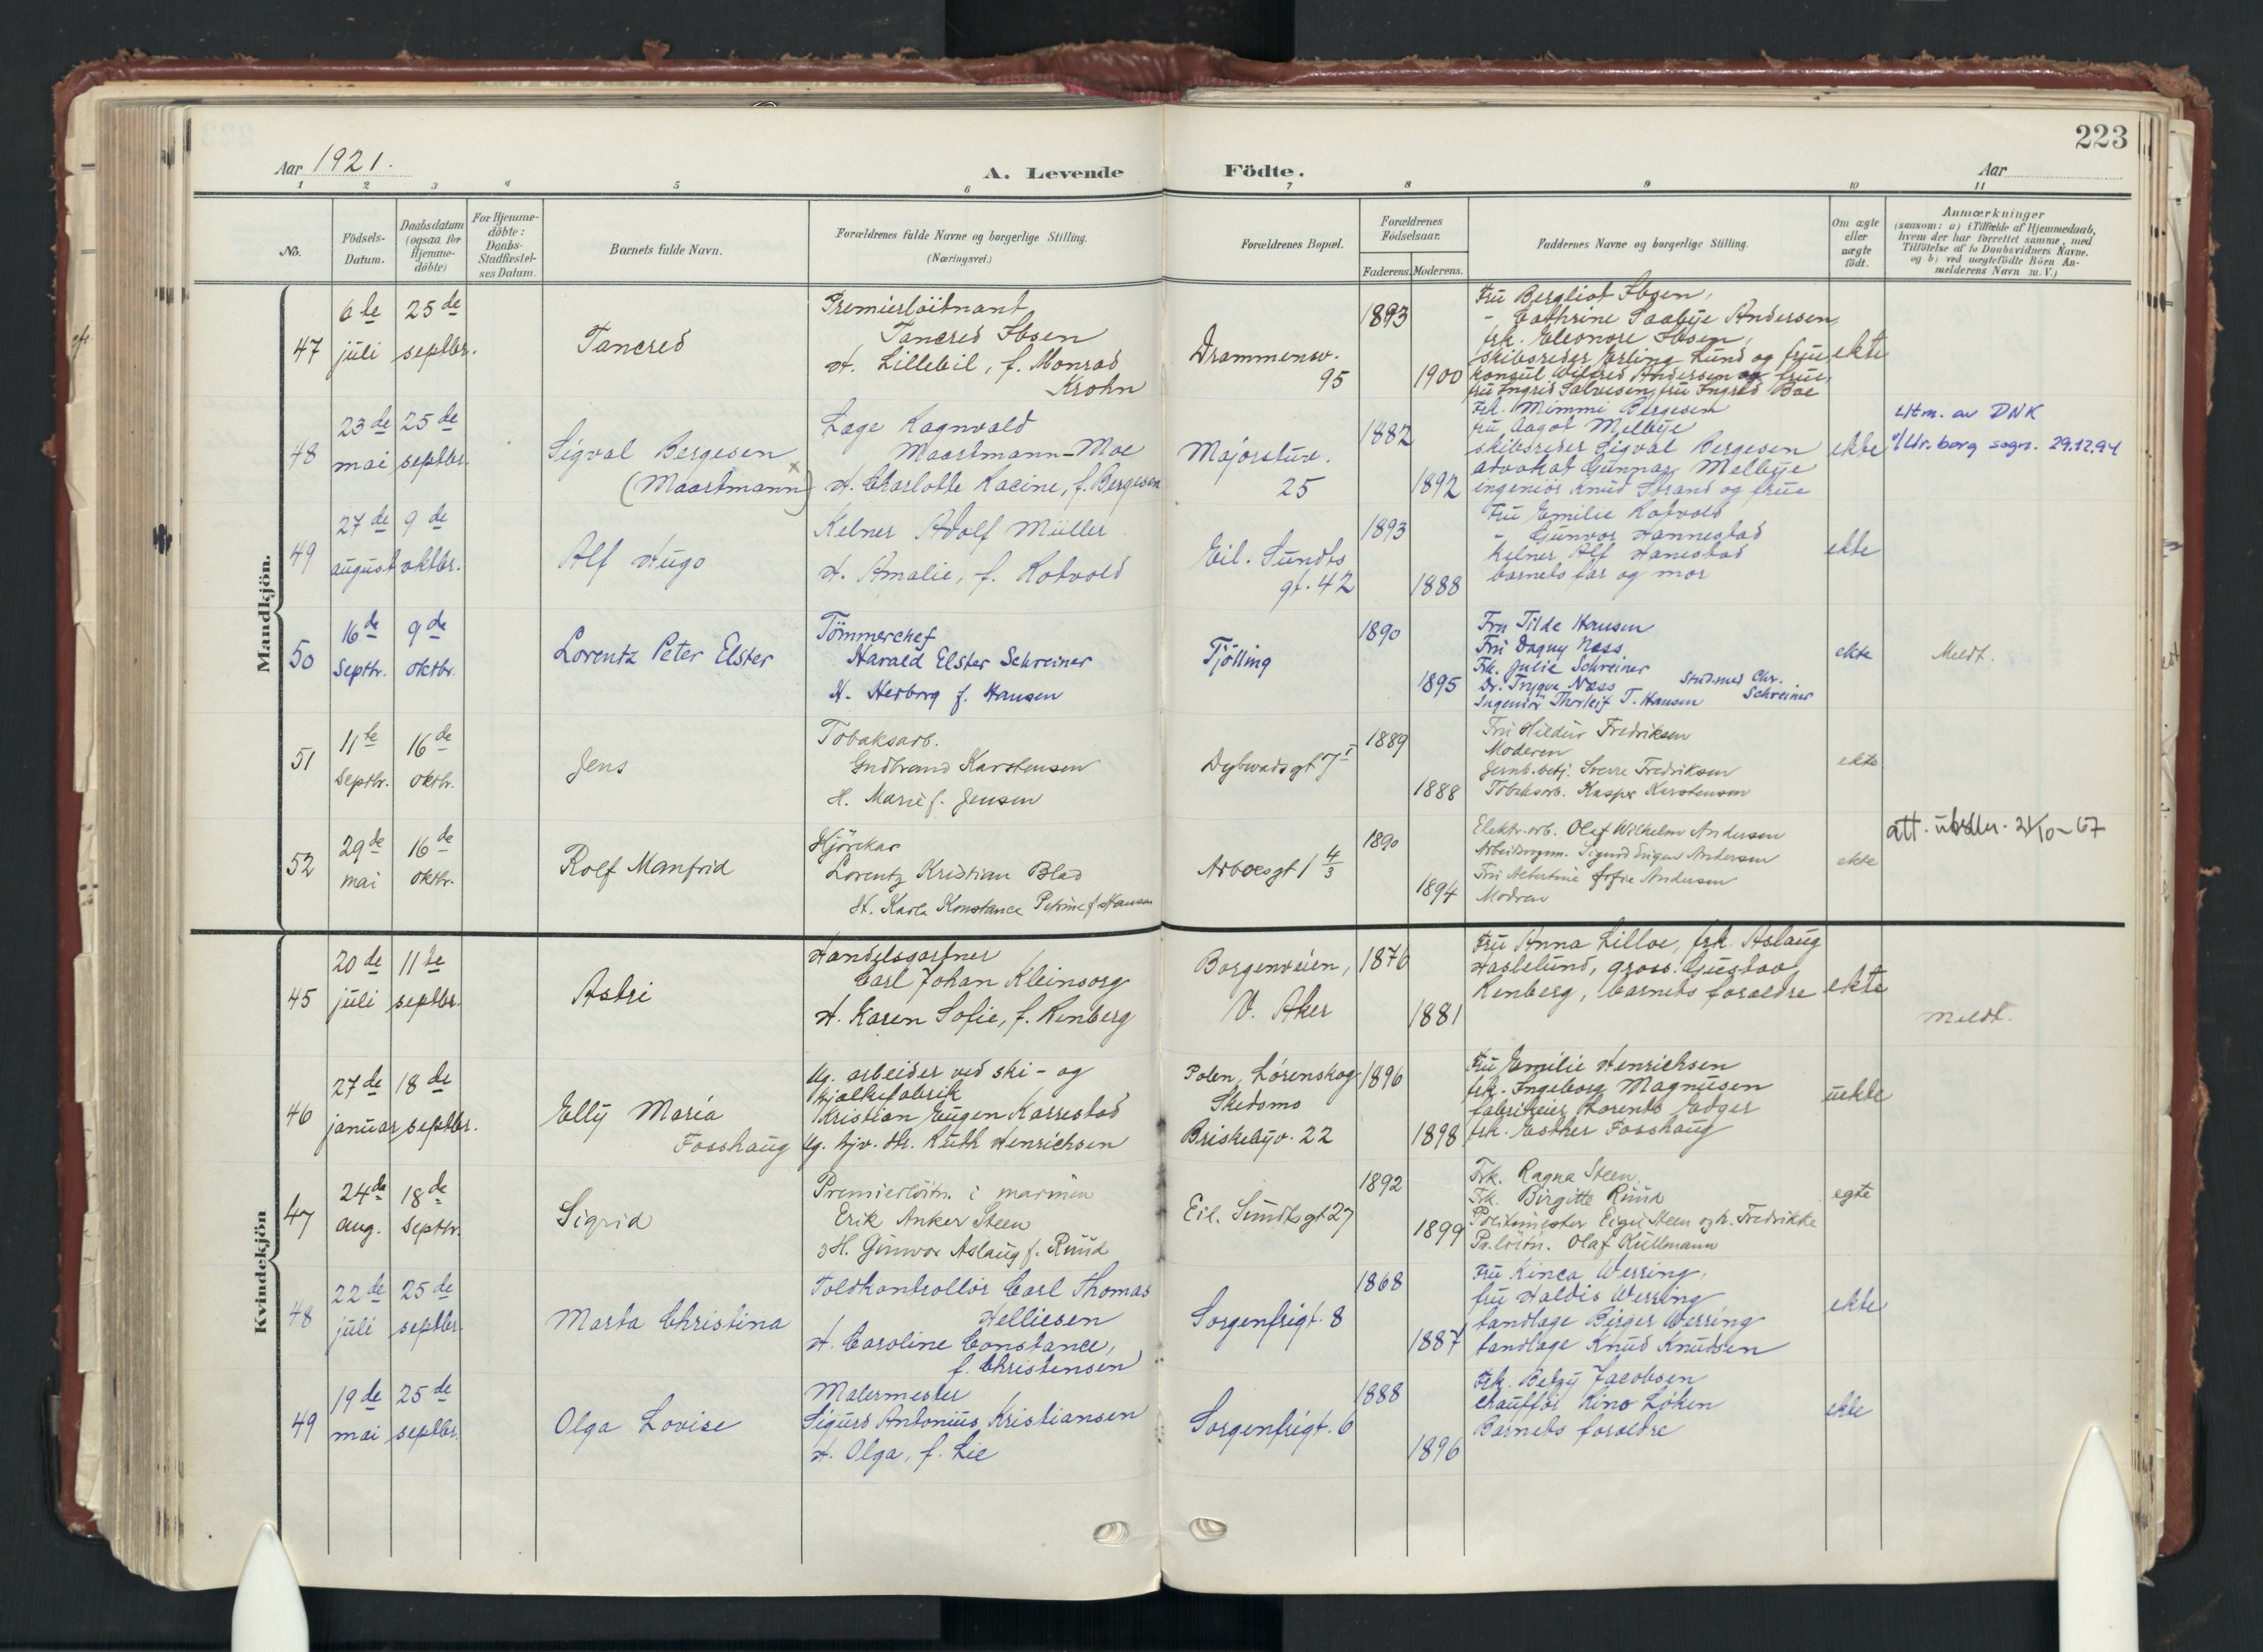 223
Aar 1921.
A. Levende Födte.
Aar
1 2 3 4 5 6 7 8 9 10 11
No.
Födsels-Datum.
Daabsdatum (ogsaa for Hjemme-döbte)
For Hjemme-döbte: Daabs-Stadfæstel-ses Datum.
Barnets fulde Navn.
Forældrenes fulde Navne og borgerlige Stilling.
(Næringsvei.)
Forældrenes Bopæl.
Forældrenes Födselsaar.
Faderens. Moderens.
Faddernes Navne og borgerlige Stilling.
Om ægte eller uægte födt.
Anmærkninger
(saasom: a) i Tilfælde af Hjemmedaab,
hvem der har forrettet samme, med
Tilföielse af to Daabsvidners Navne.
og b) ved uægtefödte Börn An-
melderens Navn m. V.)
Mandkjön.
47
6te juli
25de septbr.
Tancred
Premierløitnant
Tancred Ibsen
H. Lillebil, f. Monrad
Krohn
Drammensv.
95
1893
1900
Fru Bergliot Ibsen,
- Cathrine Saabye Andersen,
frk. Eleonore Ibsen,
skibsreder Erling Lund og frue
konsul Wilfred Andersen og frue,
fru Ingrid Salvesen, fru Ingrid Boe
ekte
48
23de mai
25de septbr.
Sigval Bergesen
(Maartmann)
Læge Ragnvald
Maartmann-Moe
H. Charlotte Racine, f. Bergesen
Majorstuv.
25
1882
1892
Frk. Mimmi Bergesen
fru Aagot Melbye
skibsreder Sigval Bergesen
advokat Gunnar Melbye
ingeniør Knud Strand og frue
ekte
Utm. av DNK
v/Ur.borg sogn. 29.12.94
49
27de august
9de oktbr.
Alf Hugo
Kelner Adolf Müller
H. Amalie, f. Rotvold
Eil. Sundts
gt. 42
1893
1888
Fru Emilie Rotvold
- Gunvor Hannestad
kelner Alf Hanestad
barnets far og mor
ekte
50
16de Septbr.
9de oktbr.
Lorentz Peter Elster
Tömmerchef
Harald Elster Schreiner
H. Herborg f. Hansen
Tjölling
1890
1895
Fru Tilde Hansen
Fru Dagny Næss
Frk. Julie Schreiner
Dr. Trygve Næss Stud.med Chr.
Ingeniör Thorleif T. Hansen Schreiner
ekte
Meldt.
51
11te Septbr.
16de oktbr.
Jens
Tobaksarb.
Gudbrand Karstensen
H. Marie f. Jensen
Dybwadsgt 7 I
1889
1888
Fru Hildur Fredriksen
Moderen
Jernb.betj. Sverre Fredriksen
Tobaksarb. Kasper Karstensen
ekte
52
29de mai
16de oktbr.
Rolf Manfrid
Kjörekar
Lorentz Kristian Blad
H. Karla Konstance Petrine f Hansen
Arboesgt 1 4/3
1890
1894
Elektr.arb. Olaf Wilhelm Andersen
Arbeidsgm. Sigurd Eugen Andersen
Fru Albertine Sofie Andersen
Modren
ekte
att. utstler. 21/10-67
Kvindekjön
45
20de juli
11te septbr.
Astri
Handelsgartner
Carl Johan Kleinsorg
H. Karen Sofie, f. Renberg
Borgenveien,
V. Aker
1876
1881
Fru Anna Lilloe, frk. Aslaug
Haslelund, gross. Gustav
Renberg, barnets foreldre
ekte
Meldt.
46
27de januar
18de septbr.
Elly Maria
Fosshaug
Ug. arbeider ved ski- og
kjælkefabrik
Kristian Eugen Karrestad
Ug. hjv. dtr. Ruth Henrichsen
Polen, Lörenskog
Skedsmo
Briskebyv. 22
1896
1898
Fru Emilie Henrichsen
frk. Ingeborg Magnusen
fabrikeier Lorents Edger
frk. Esther Fosshaug
uekte
47
24de aug.
18de Septbr.
Sigrid
Premierlöitn. i marinen
Erik Anker Steen
H. Gunvor Aslaug f. Ruud
Eil. Sundtsgt 27
1892
1899
Frk. Ragna Steen
Frk. Birgitte Ruud
Politimester Eigil Steen og h. Fredrikke
Pr.löitn. Olaf Kullmann
egte
48
22de juli
25de septbr.
Marta Christina
Toldkontrollör Carl Thomas
Helliesen
H. Caroline Constance,
f. Christensen
Sorgenfrigt. 8
1868
1887
Fru Kinca Werring,
fru Haldis Werring
tandlæge Birger Werring
tandlæge Knud Knudsen
ekte
49
19de mai
25de septbr.
Olga Lovise
Malermester
Sigurd Antonius Kristiansen
H. Olga, f. Lie
Sorgenfrigt. 6
1888
1896
Frk. Betzy Jacobsen
chauffør Kino Løken
Barnets foreldre
ekte